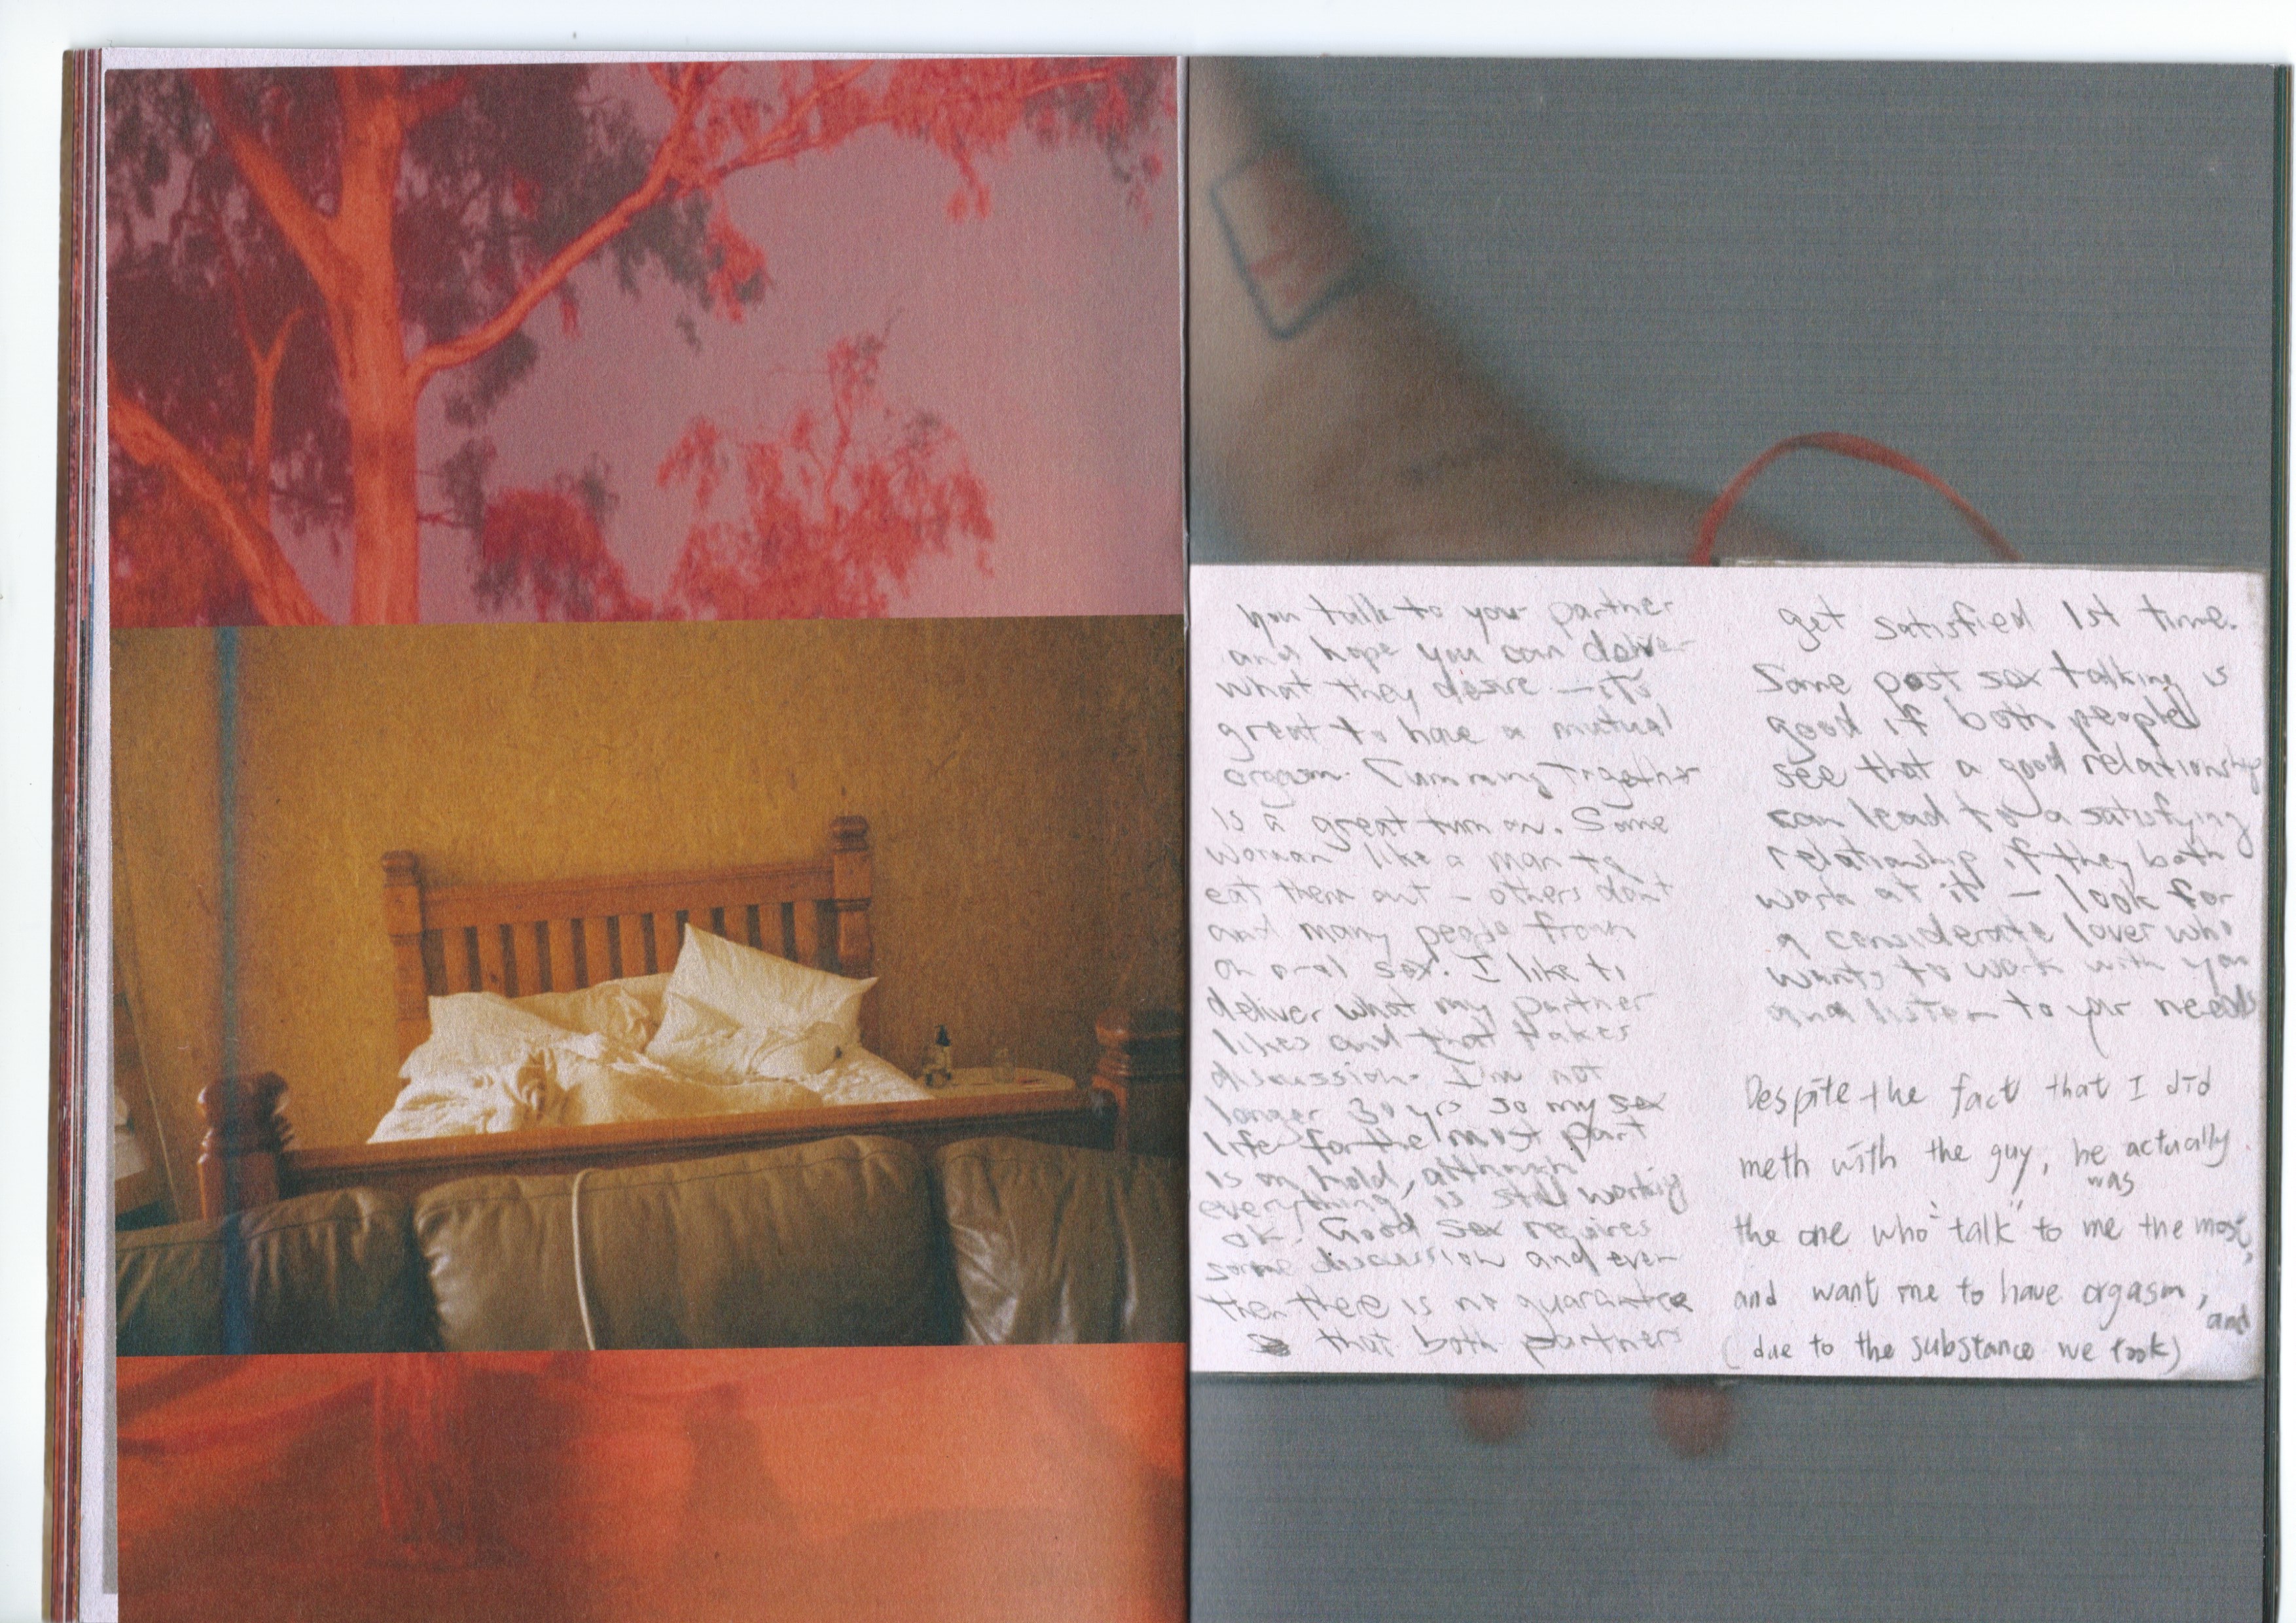 you talk to your partner
and hope you can deliver
what they desire - it's
great to have a mutual
orgasm. Cumming together
is a great turn on. Some
woman like a man to
eat them out - others dont
and many people frown
on oral sex. I like to
deliver what my partner
likes and that takes
discussion. I'm not
longer 30 yrs so my sex
life for the most part
is on hold, although
everything is still working
ok. Good sex requires
some discussion and even
then there is no guarantee
that both partners
get satisfied 1st time.
Some post sex talking is
good if both people
see that a good relationship
can lead to a satisfying
relationship if they both
work at it - look for
a considerate lover who
wants to work with you
and listen to your needs
Despite the fact that I did
meth with the guy, he actually
was
the one who "talk" to me the most,
and want me to have orgasm, and
(due to the substance we took)